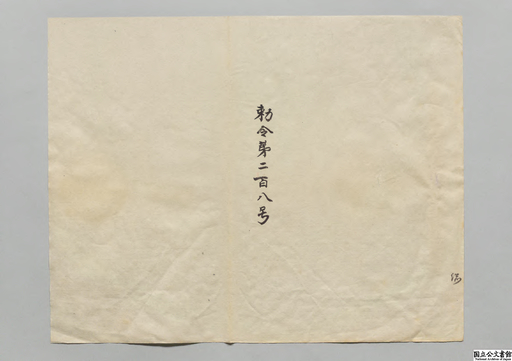 勅令第二百八号
国立公文書館
National Archives of Japan